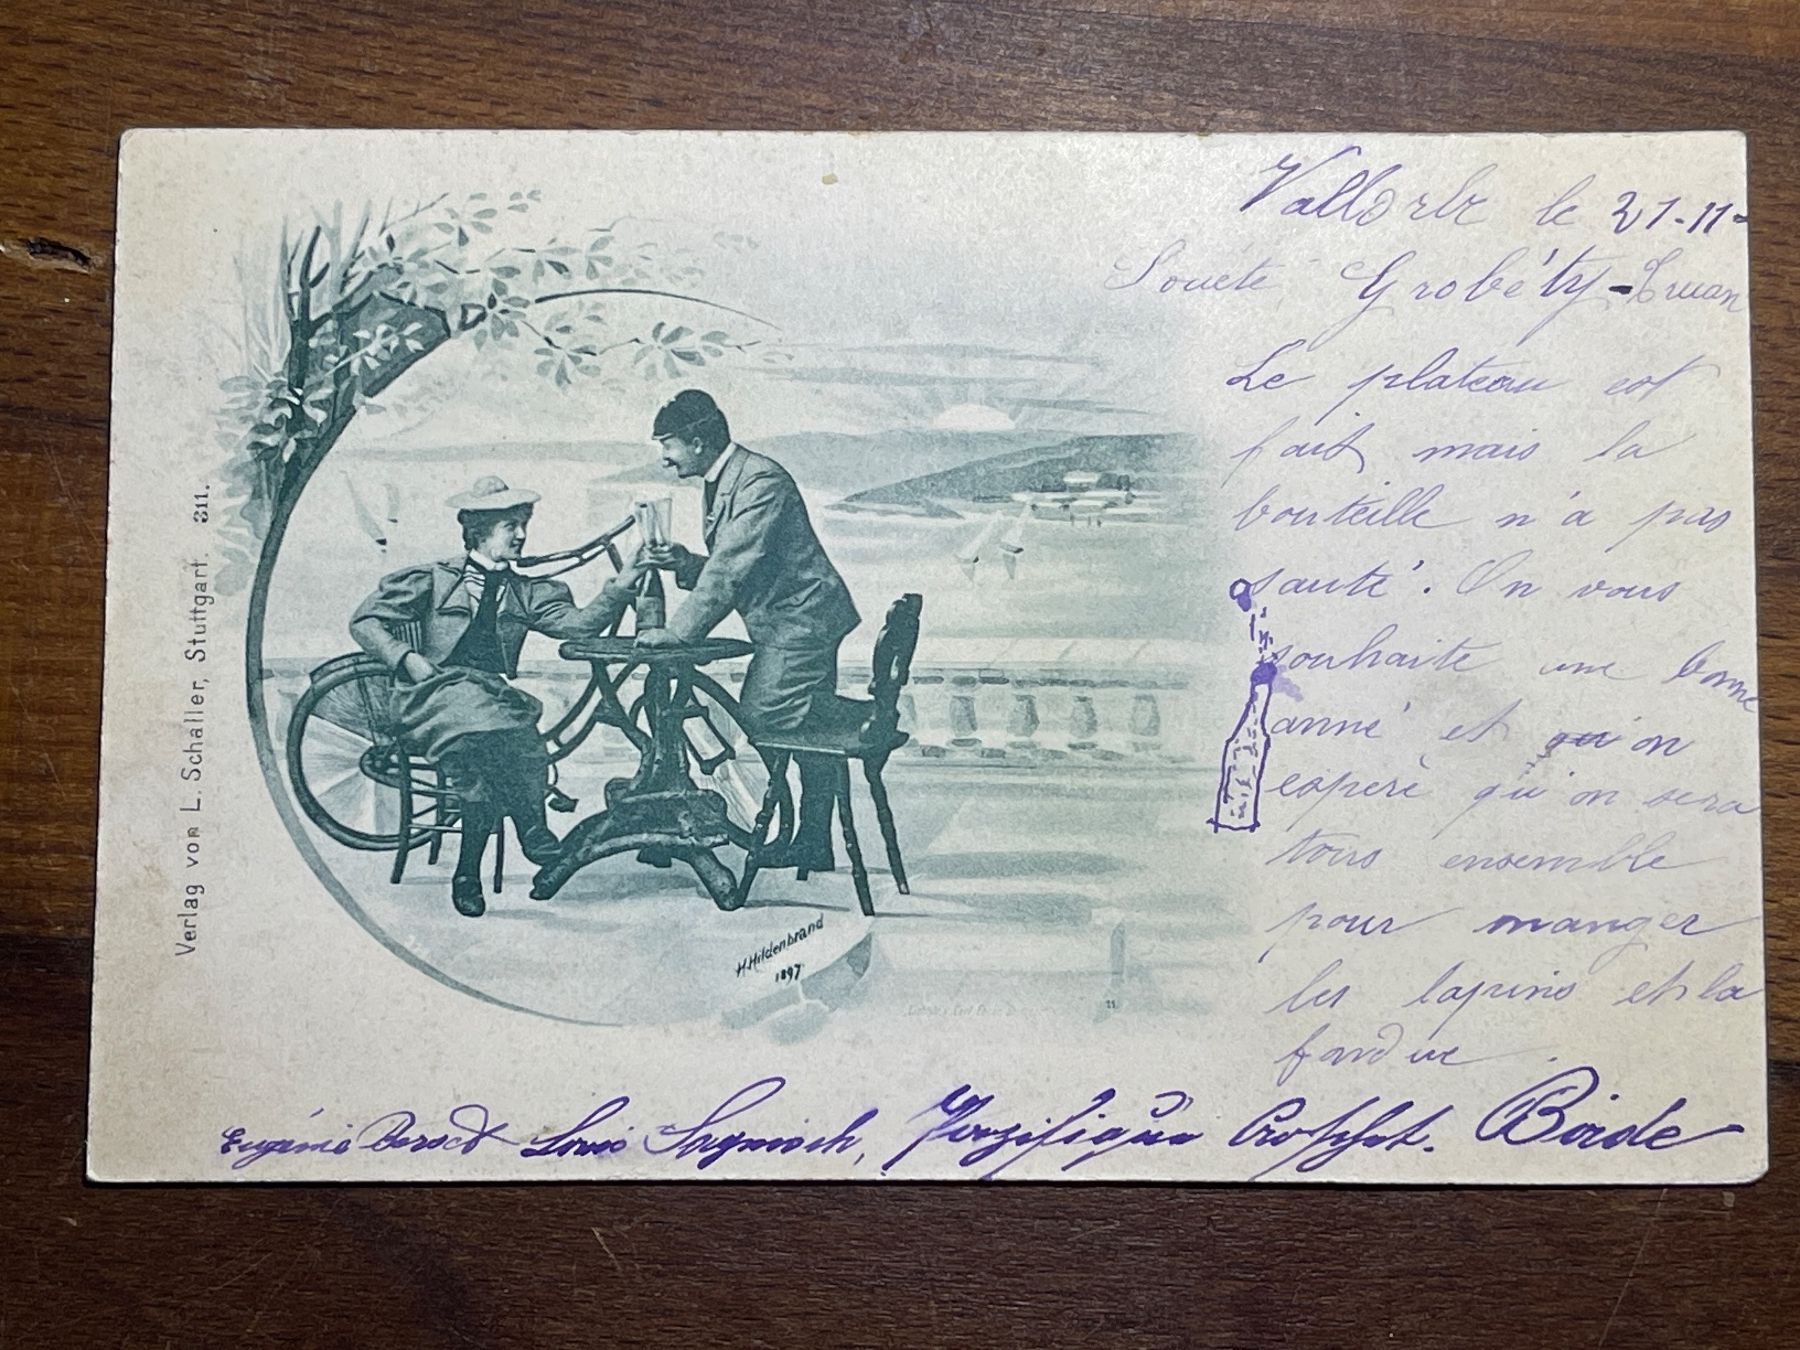 Vallorbe le 21-11-
Société Grobéty-
Le plateau est
fait mais la
bouteille n'a pas
sauté. On vous
souhaite une bonne
anné et qu'on
espère qu'on sera
tous ensemble
pour manger
les lapins et la
fondue.
Eugénie Louis
Verlag von L. Schaller, Stuttgart. 311.
H. Hildenbrand
1897